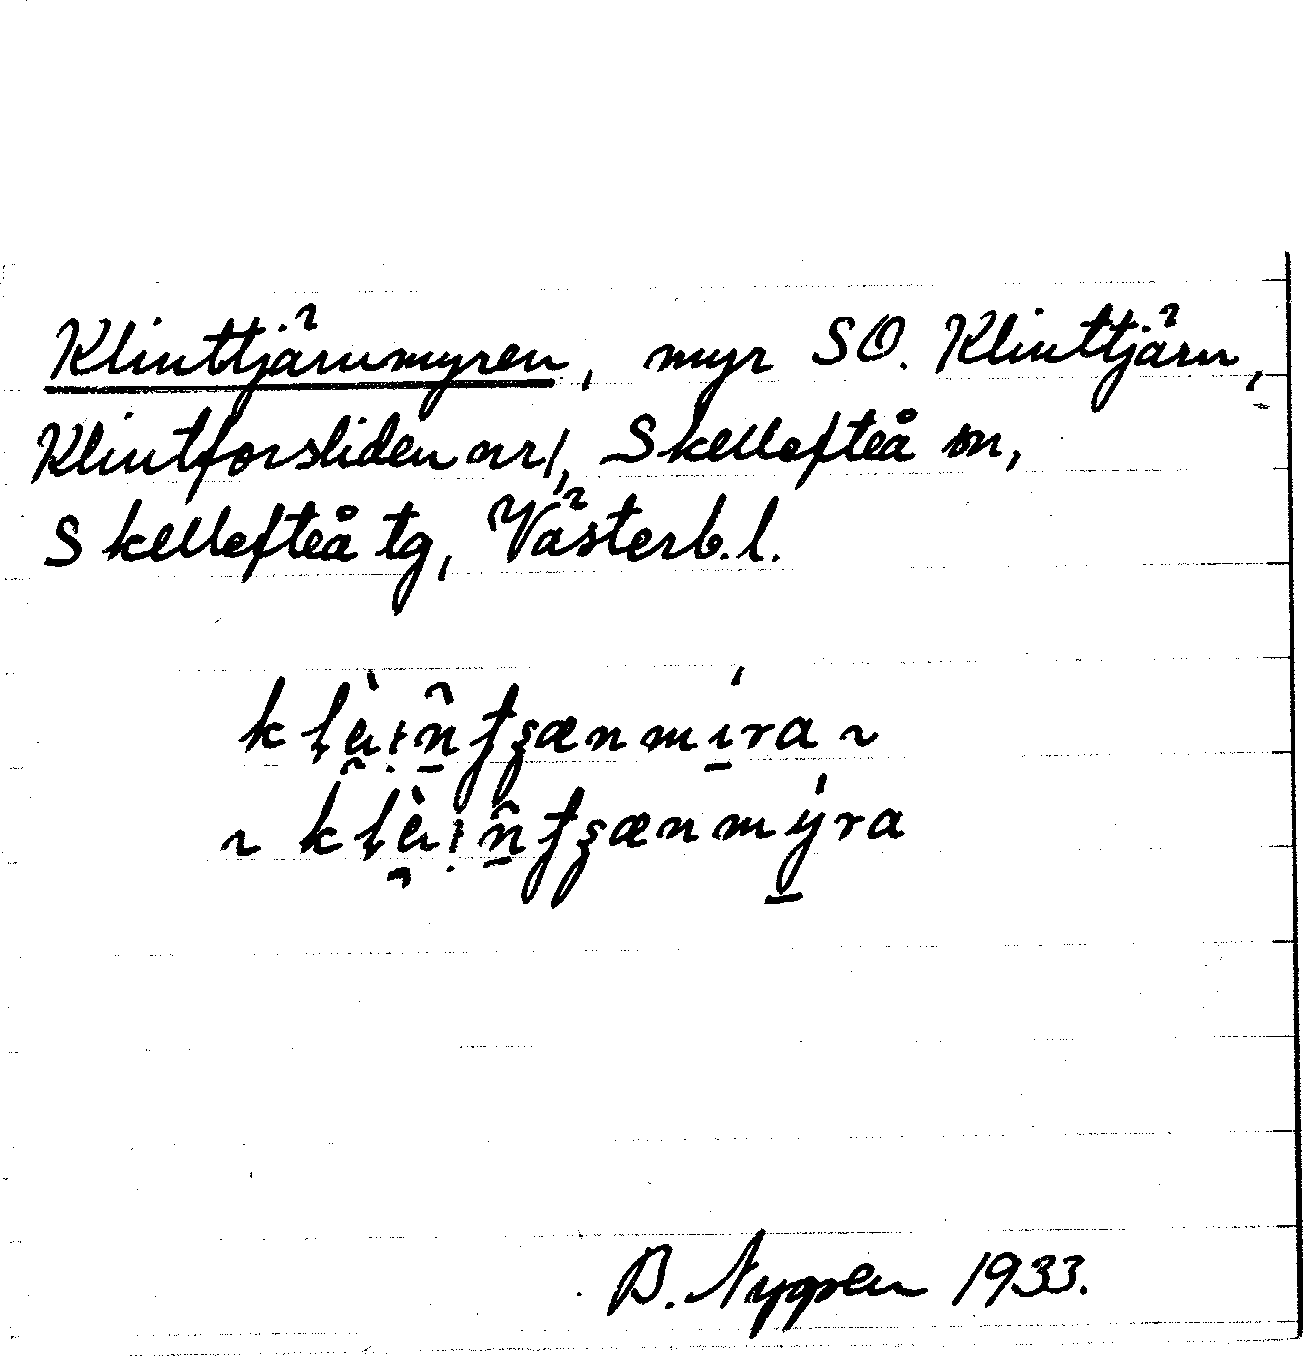 Klinttjärnmyren, myr SO. Klinttjärn,
Klintforsliden nr 1, Skellefteå sn,
Skellefteå tg, Västerb.l.
B. Nygren 1933.